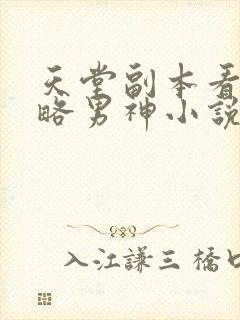 天堂副本看
略男神小説
入江謙三 橋口